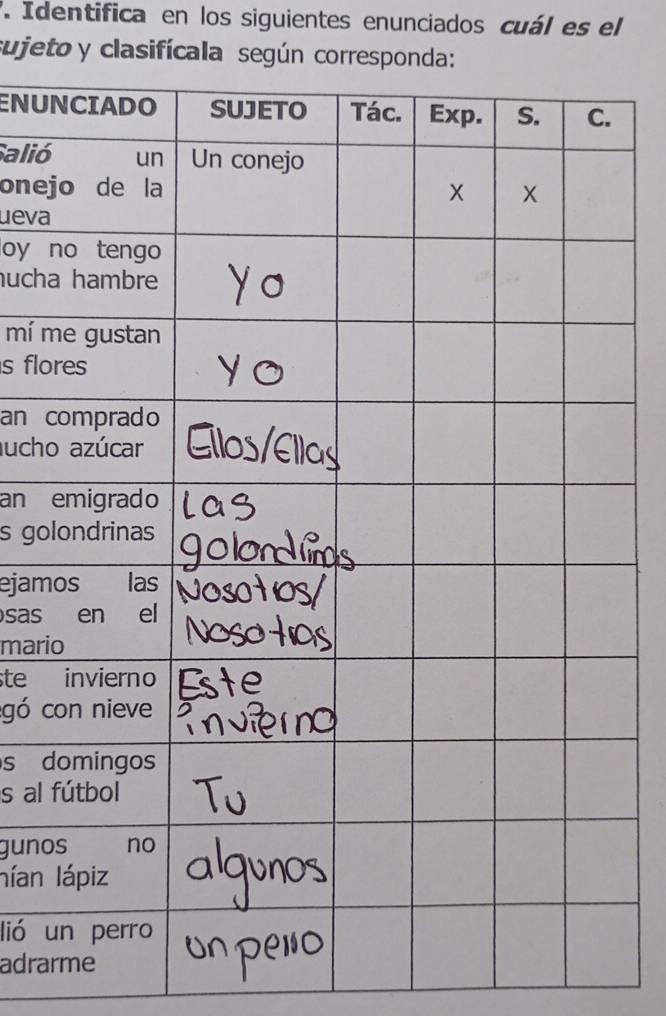 . Identifica en los siguientes enunciados cuál es el
sujeto y clasifícala según corresponda:
ENUNCIADO SUJETO Tác. Exp. S. C.
Salió un Un conejo
onejo de la X X
ueva
oy no tengo
ucha hambre yo
mí me gustan
s flores yo
an comprado
ucho azúcar Ellos/Ellas
an emigrado Las
s golondrinas golondrinas
ejamos las Nosotros/
osas en el Nosotras
mario
ste invierno Este
gó con nieve invierno
s domingos
s al fútbol Tu
gunos no algunos
nían lápiz
lió un perro un perro
adrarme